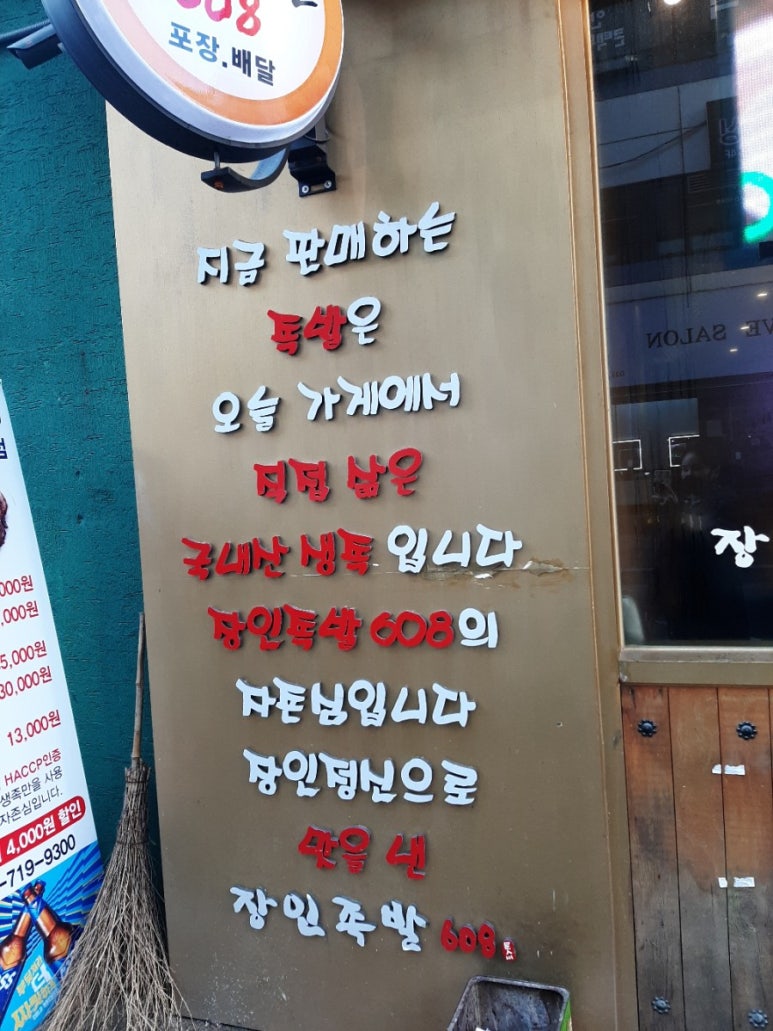 608
포장.배달
지금 판매하는
족발은
오늘 가게에서
직접 삶은
국내산 생족 입니다
장인족발 608의
자존심입니다
장인정신으로
맛을 낸
장인족발 608
VE SALON
장
000원
,000원
5,000원
30,000원
13,000원
HACCP인증
생족만을 사용
자존심입니다.
4,000원 할인
-719-9300